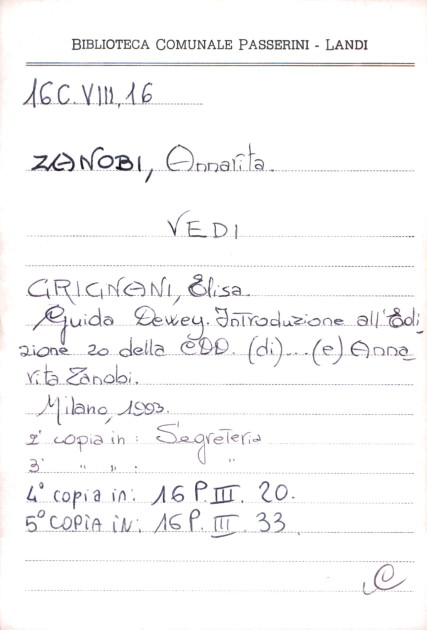 BIBLIOTECA COMUNALE PASSERINI - LANDI
16 C. VIII, 16
ZANOBI, Annarita.
VEDI
GRIGNANI, Elisa.
Guida Dewey. Introduzione all'Edi
zione 20 della CDD. (di)...(e) Anna
rita Zanobi.
Milano, 1993.
2ª copia in: Segreteria
3ª " " : "
4ª copia in: 16 P. III. 20.
5ª COPIA IN: 16 P. III. 33
C